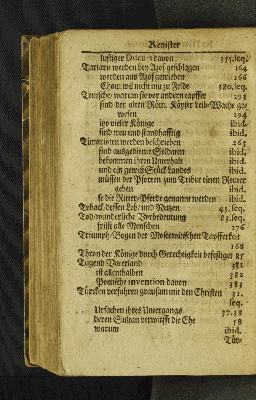 Register
lustiger Discurs davon 355. seq.
Tartarn werden von Azof geschlagen 164
werden aus Azof getrieben 166
Cham wil nicht mit zu Felde 380. seq.
Teutsche / warum sie vor andern tapffer 293
sind der alten Röm. Käyser Leib-Wache ge-
wesen 294
itzo vieler Könige ibid.
sind treu und standhafftig ibid.
Timarioten werden beschrieben 265
sind ausgediente Soldaten ibid.
bekommen ihren Unterhalt ibid.
und ein gewiß Stück Landes ibid.
müssen der Pforten zum Tribut einen Reuter
geben ibid.
so die Ritter-Pferde genannt werden ibid.
Toback dessen Lob / und Nutzen 43. seq.
Tod / wunderliche Vorbedeutung 83. seq.
frisst alle Menschen 176
Triumph-Bogen der Moscowitischen Tapfferkeit
168
Thron der Könige durch Gerechtigkeit befestiget 85
Tugend Vaterland 381
ist allenthalben 382
Poetische invention davon 383
Türcken verfahren grausam mit den Christen 31.
seq.
Ursachen ihres Untergangs 37. 38
deren Sultan verwirfft die Ehe 58
warum ibid.
Tür-